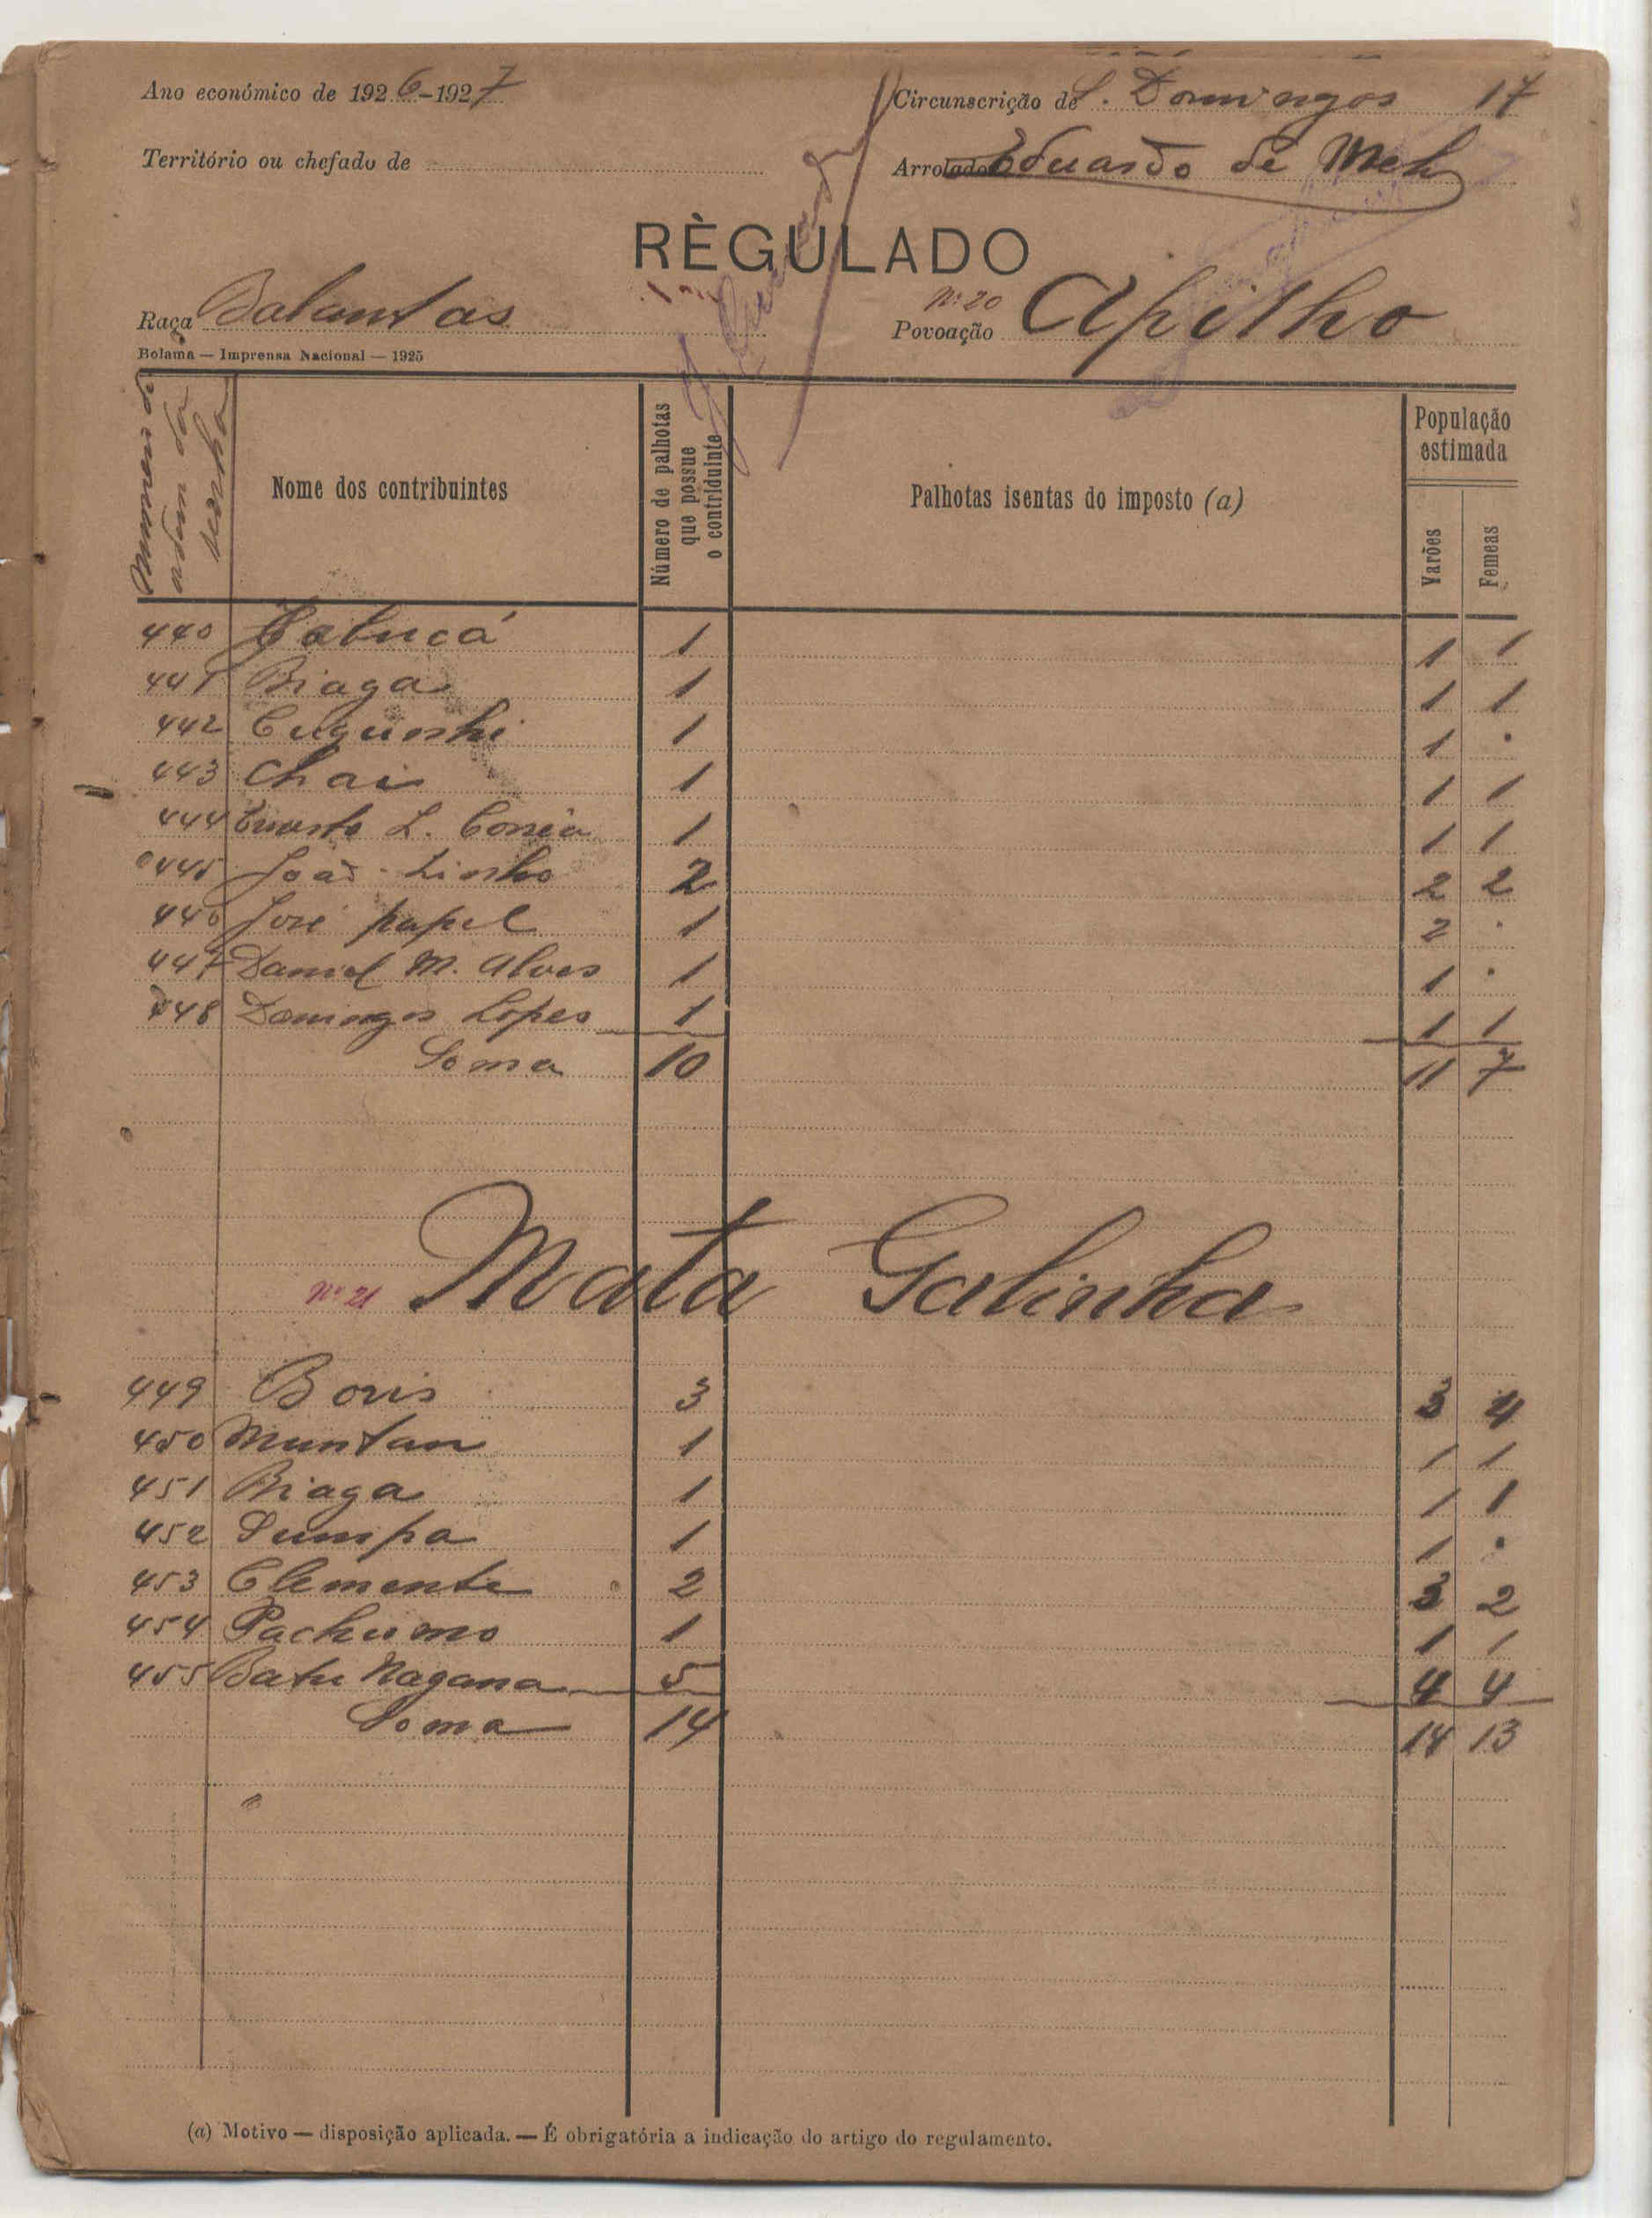 Ano económico de 1926-1927
Circunscrição de S. Domingos 17
Território ou chefado de
Arrolado Eduardo de
RÈGULADO
Raça Balantas
Nº 20
Povoação Apilho
Bolama — Imprensa Nacional — 1925
Nome dos contribuintes
Número de palhotas que possue o contriduinte
Palhotas isentas do imposto (a)
População estimada
Varões
Femeas
440 1 1 1
441 Biaga 1 1 1
442 1 1 .
443 Chai 1 1 1
444 L. Correia 1 1 1
445 João 2 2 2
446 José papel 1 2 .
447 Daniel M. Alves 1 1 .
448 Domingos Lopes 1 1 1
Soma 10 11 7
Nº 21 Mata Galinha
449 Boris 3 3 4
450 Muntan 1 1 1
451 Biaga 1 1 1
452 Sumpa 1 1 .
453 Clemente 2 3 2
454 1 1 1
455 Batu Nagana 5 4 4
Soma 14 14 13
(a) Motivo — disposição aplicada. — É obrigatória a indicação do artigo do regulamento.